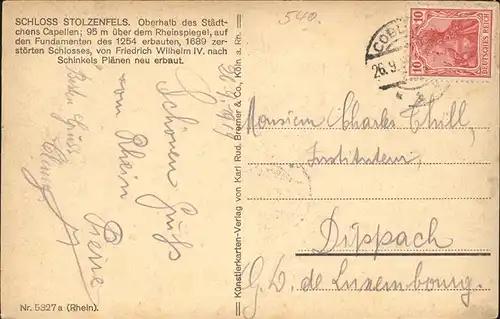 SCHLOSS STOLZENFELS. Oberhalb des Städt-
chens Capellen; 95 m über dem Rheinspiegel, auf
den Fundamenten des 1254 erbauten, 1689 zer-
störten Schlosses, von Friedrich Wilhelm IV. nach
Schinkels Plänen neu erbaut.
540.
10 10
DEUTSCHES REICH
26.9.
Schönen Gruß
vom Rhein
Pierre
Künstlerkarten-Verlag von Karl Rud. Bremer & Co., Köln a. Rh.
Monsieur Charles Thill,
Instituteur,
Dippach
G. D. de Luxembourg.
Nr. 5327a (Rhein).